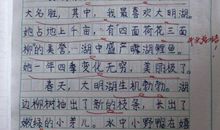 大名胜，其中，我最喜欢大明湖。
她占地上千亩，有四面荷花三面
柳的美誉。湖中盛产睡湖鲤鱼。
她一年四季变化无穷，美丽极了。
春天，大明湖生机勃勃。湖
边柳树抽出了新的枝条，长出了
嫩绿的小芽儿。水中小野鸭在嬉